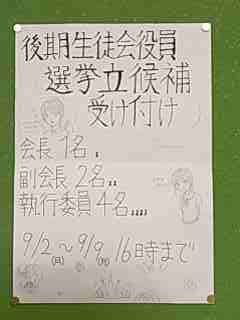 後期生徒会役員
選挙立候補
受け付け
会長 1名
副会長 2名
執行委員 4名
9/2(月)〜9/9(月) 16時まで